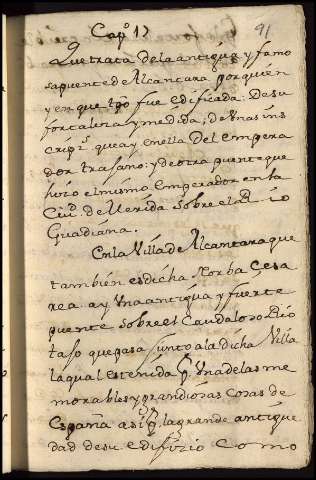 Capº 17
91
Que trata de la antigua y famo
sa puente de Alcantara porquien
y en que tpo fue edificada: De su
fortaleza y medida; de unas ins
cripˢ. que ay en ella Del empera
dor trajano: y de otra puente que
hizo el mismo Emperador en la
Ciuᵈ. de Merida sobre el Rio
Guadiana.
En la Villa de Alcantara que
tambien es dicha Norba Cesa
rea ay una antigua y fuerte
puente sobre el Caudaloso Rio
tajo que pasa junto a la dicha Villa
la qual es tenida pʳ. una de las me
morables y grandiosas cosas de
España asi pʳ. la grande antigue
dad de su edifizio como